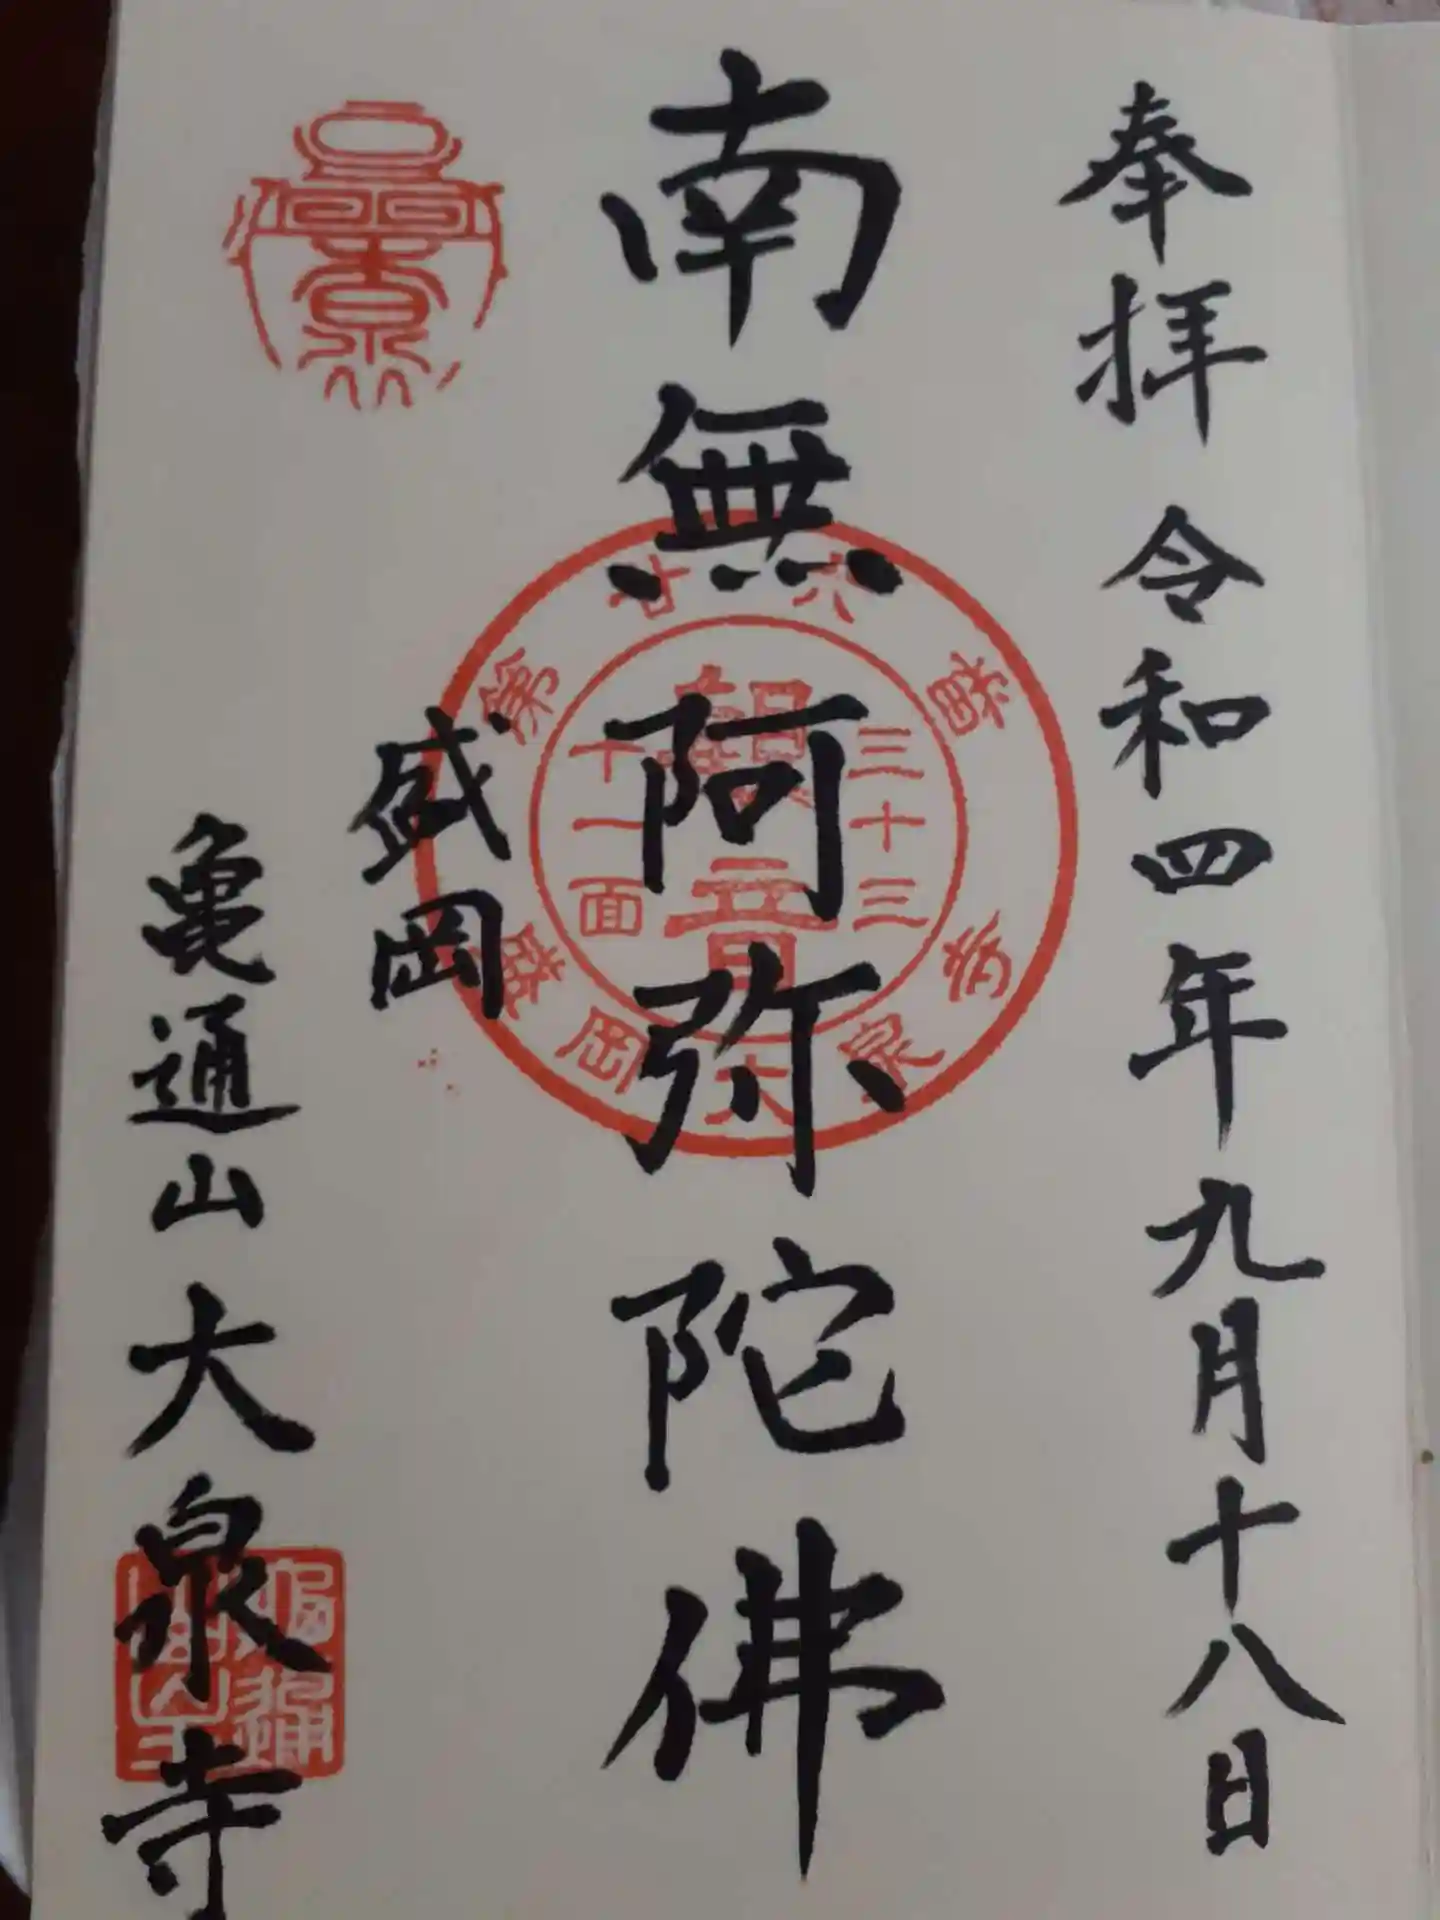 奉拝 令和四年九月十八日
南無阿弥陀佛
第廿六番
三十三
観音
十一面
盛岡大泉寺
盛岡
亀通山大泉寺